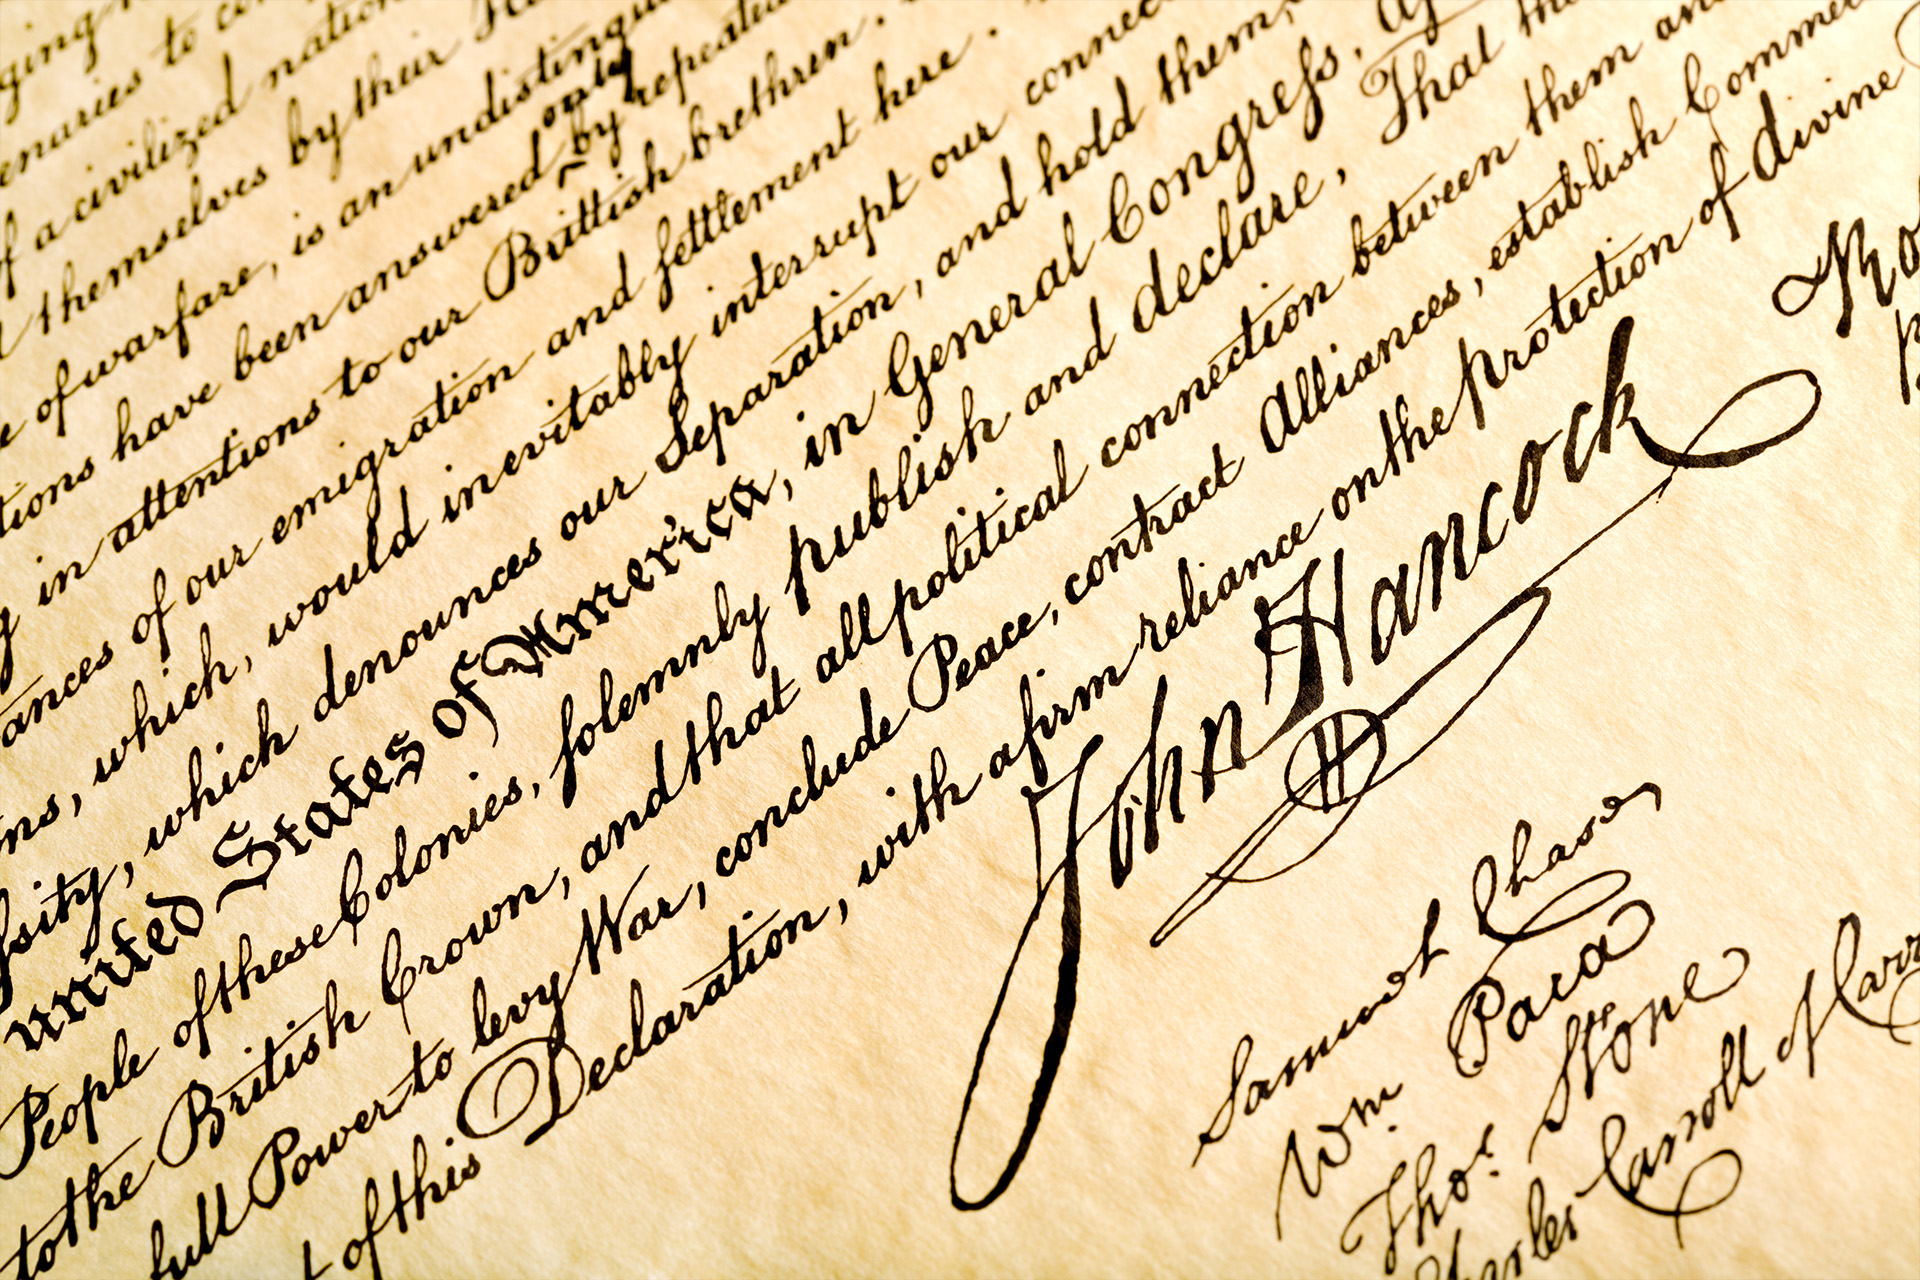 ging
enaries to co
of a civilized nation
themselves by their
e of warfare, is an undistingu
only
tions have been answered by repeated
g in attentions to our Brittish brethren.
ances of our emigration and ſettlement here.
ns, which, would inevitably interrupt our connec
ſsity, which denounces our Separation, and hold them,
united States of America, in General Congreſs,
People of these Colonies, ſolemnly publish and declare, That the
to the British Crown, and that all political connection between them an
full Power to levy War, conclude Peace, contract Alliances, establish Comme
t of this Declaration, with a firm reliance on the protection of divine
John Hancock
Samuel Chase
Wm. Paca
Thos. Stone
Charles Carroll of Carr